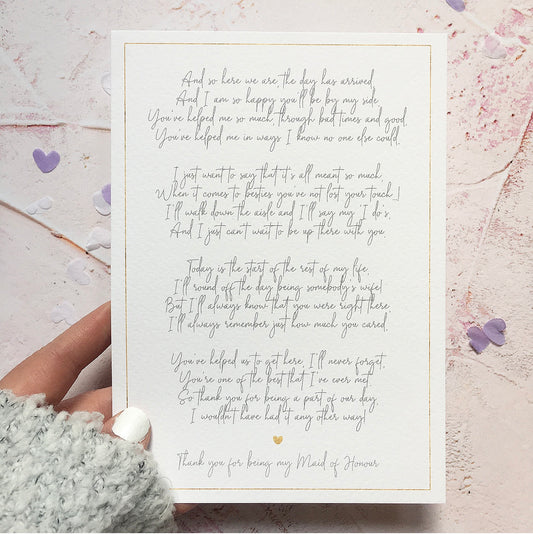 And so here we are, the day has arrived
And I am so happy you'll be by my side
You've helped me so much, through bad times and good
You've helped me in ways I know no one else could.
I just want to say that it's all meant so much
When it comes to besties you've not lost your touch!
I'll walk down the aisle and I'll say my 'I do's
And I just can't wait to be up there with you
Today is the start of the rest of my life,
I'll round off the day being somebody's wife!
But I'll always know that you were right there
I'll always remember just how much you cared.
You've helped us to get here, I'll never forget,
You're one of the best that I've ever met
So thank you for being a part of our day,
I wouldn't have had it any other way!
Thank you for being my Maid of Honour